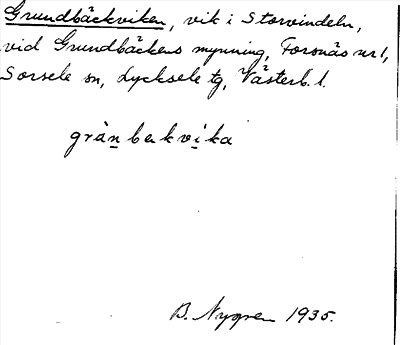 Grundbäckviken, vik i Storvindeln,
vid Grundbäckens mynning, Forsnäs nr 1,
Sorsele sn, Lycksele tg, Västerb. l.
grànbekvíka
B. Nygren 1935.